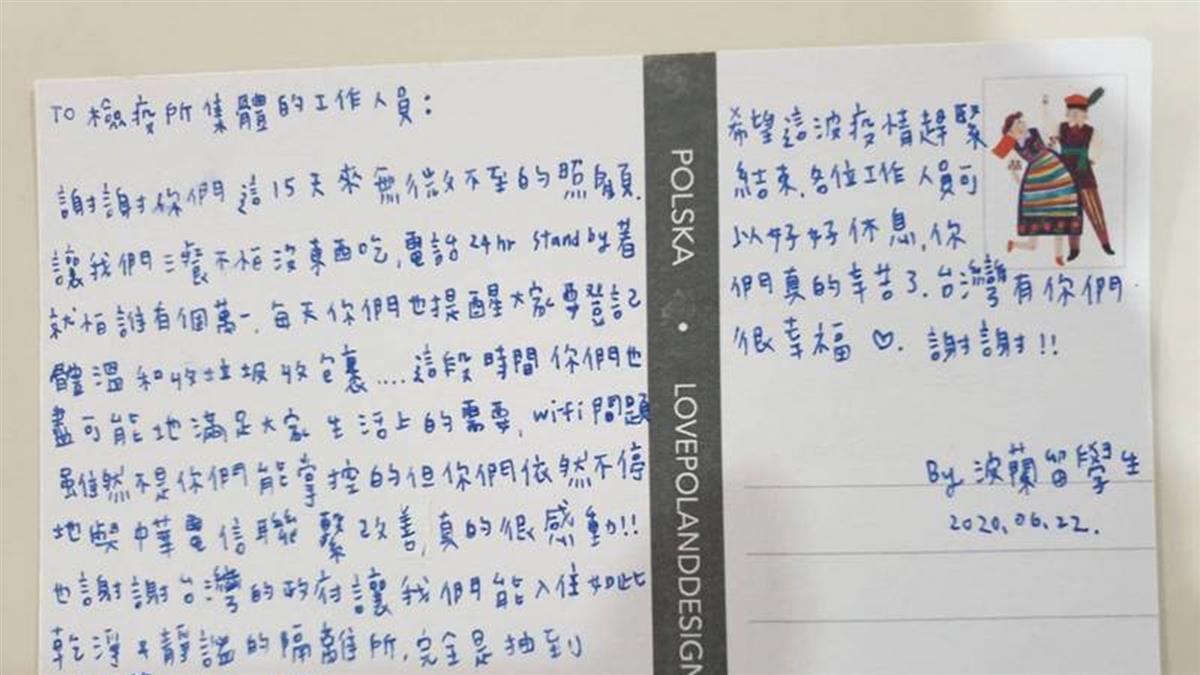 TO 檢疫所集體的工作人員:
謝謝你們這15天來無微不至的照顧.
讓我們三餐不怕沒東西吃,電話24hr stand by著
就怕誰有個萬一.每天你們也提醒大家要登記
體溫和收垃圾收包裹....這段時間你們也
盡可能地滿足大家生活上的需要,wifi問題
雖然不是你們能掌控的但你們依然不停
地與中華電信聯繫改善,真的很感動!!
也謝謝台灣的政府讓我們能入住如此
乾淨又靜謐的隔離所,完全是抽到
POLSKA • LOVEPOLANDDESIGN
希望這波疫情趕緊
結束,各位工作人員可
以好好休息,你
們真的辛苦了.台灣有你們
很幸福 ♡. 謝謝!!
By 波蘭留學生
2020.06.22.